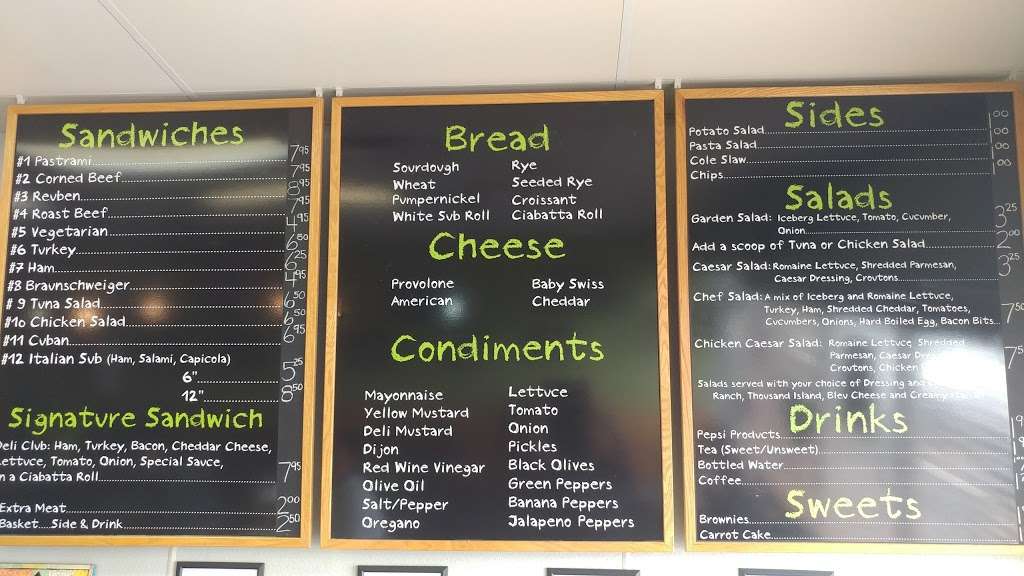 Sandwiches
#1 Pastrami 7.95
#2 Corned Beef 7.95
#3 Reuben 8.95
#4 Roast Beef 7.95
#5 Vegetarian 4.95
#6 Turkey 6.50
#7 Ham 6.25
#8 Braunschweiger 4.95
# 9 Tuna Salad 6.50
#10 Chicken Salad 6.50
#11 Cuban 6.95
#12 Italian Sub (Ham, Salami, Capicola)
6" 5.25
12" 8.50
Signature Sandwich
Deli Club: Ham, Turkey, Bacon, Cheddar Cheese,
Lettuce, Tomato, Onion, Special Sauce,
n a Ciabatta Roll 7.95
Extra Meat 2.00
Basket....Side & Drink 2.50
Bread
Sourdough Rye
Wheat Seeded Rye
Pumpernickel Croissant
White Sub Roll Ciabatta Roll
Cheese
Provolone Baby Swiss
American Cheddar
Condiments
Mayonnaise Lettuce
Yellow Mustard Tomato
Deli Mustard Onion
Dijon Pickles
Red Wine Vinegar Black Olives
Olive Oil Green Peppers
Salt/Pepper Banana Peppers
Oregano Jalapeno Peppers
Sides
Potato Salad 1.00
Pasta Salad 1.00
Cole Slaw 1.00
Chips 1.00
Salads
Garden Salad: Iceberg Lettuce, Tomato, Cucumber,
Onion 3.25
Add a scoop of Tuna or Chicken Salad 2.00
Caesar Salad: Romaine Lettuce, Shredded Parmesan, 3.25
Caesar Dressing, Croutons
Chef Salad: A mix of Iceberg and Romaine Lettuce,
Turkey, Ham, Shredded Cheddar, Tomatoes,
Cucumbers, Onions, Hard Boiled Egg, Bacon Bits... 7.50
Chicken Caesar Salad: Romaine Lettuce, Shredded
Parmesan, Caesar
Croutons, Chicken
Salads served with your choice of Dressing and
Ranch, Thousand Island, Bleu Cheese and Creamy
Drinks
Pepsi Products
Tea (Sweet/Unsweet)
Bottled Water
Coffee
Sweets
Brownies
Carrot Cake